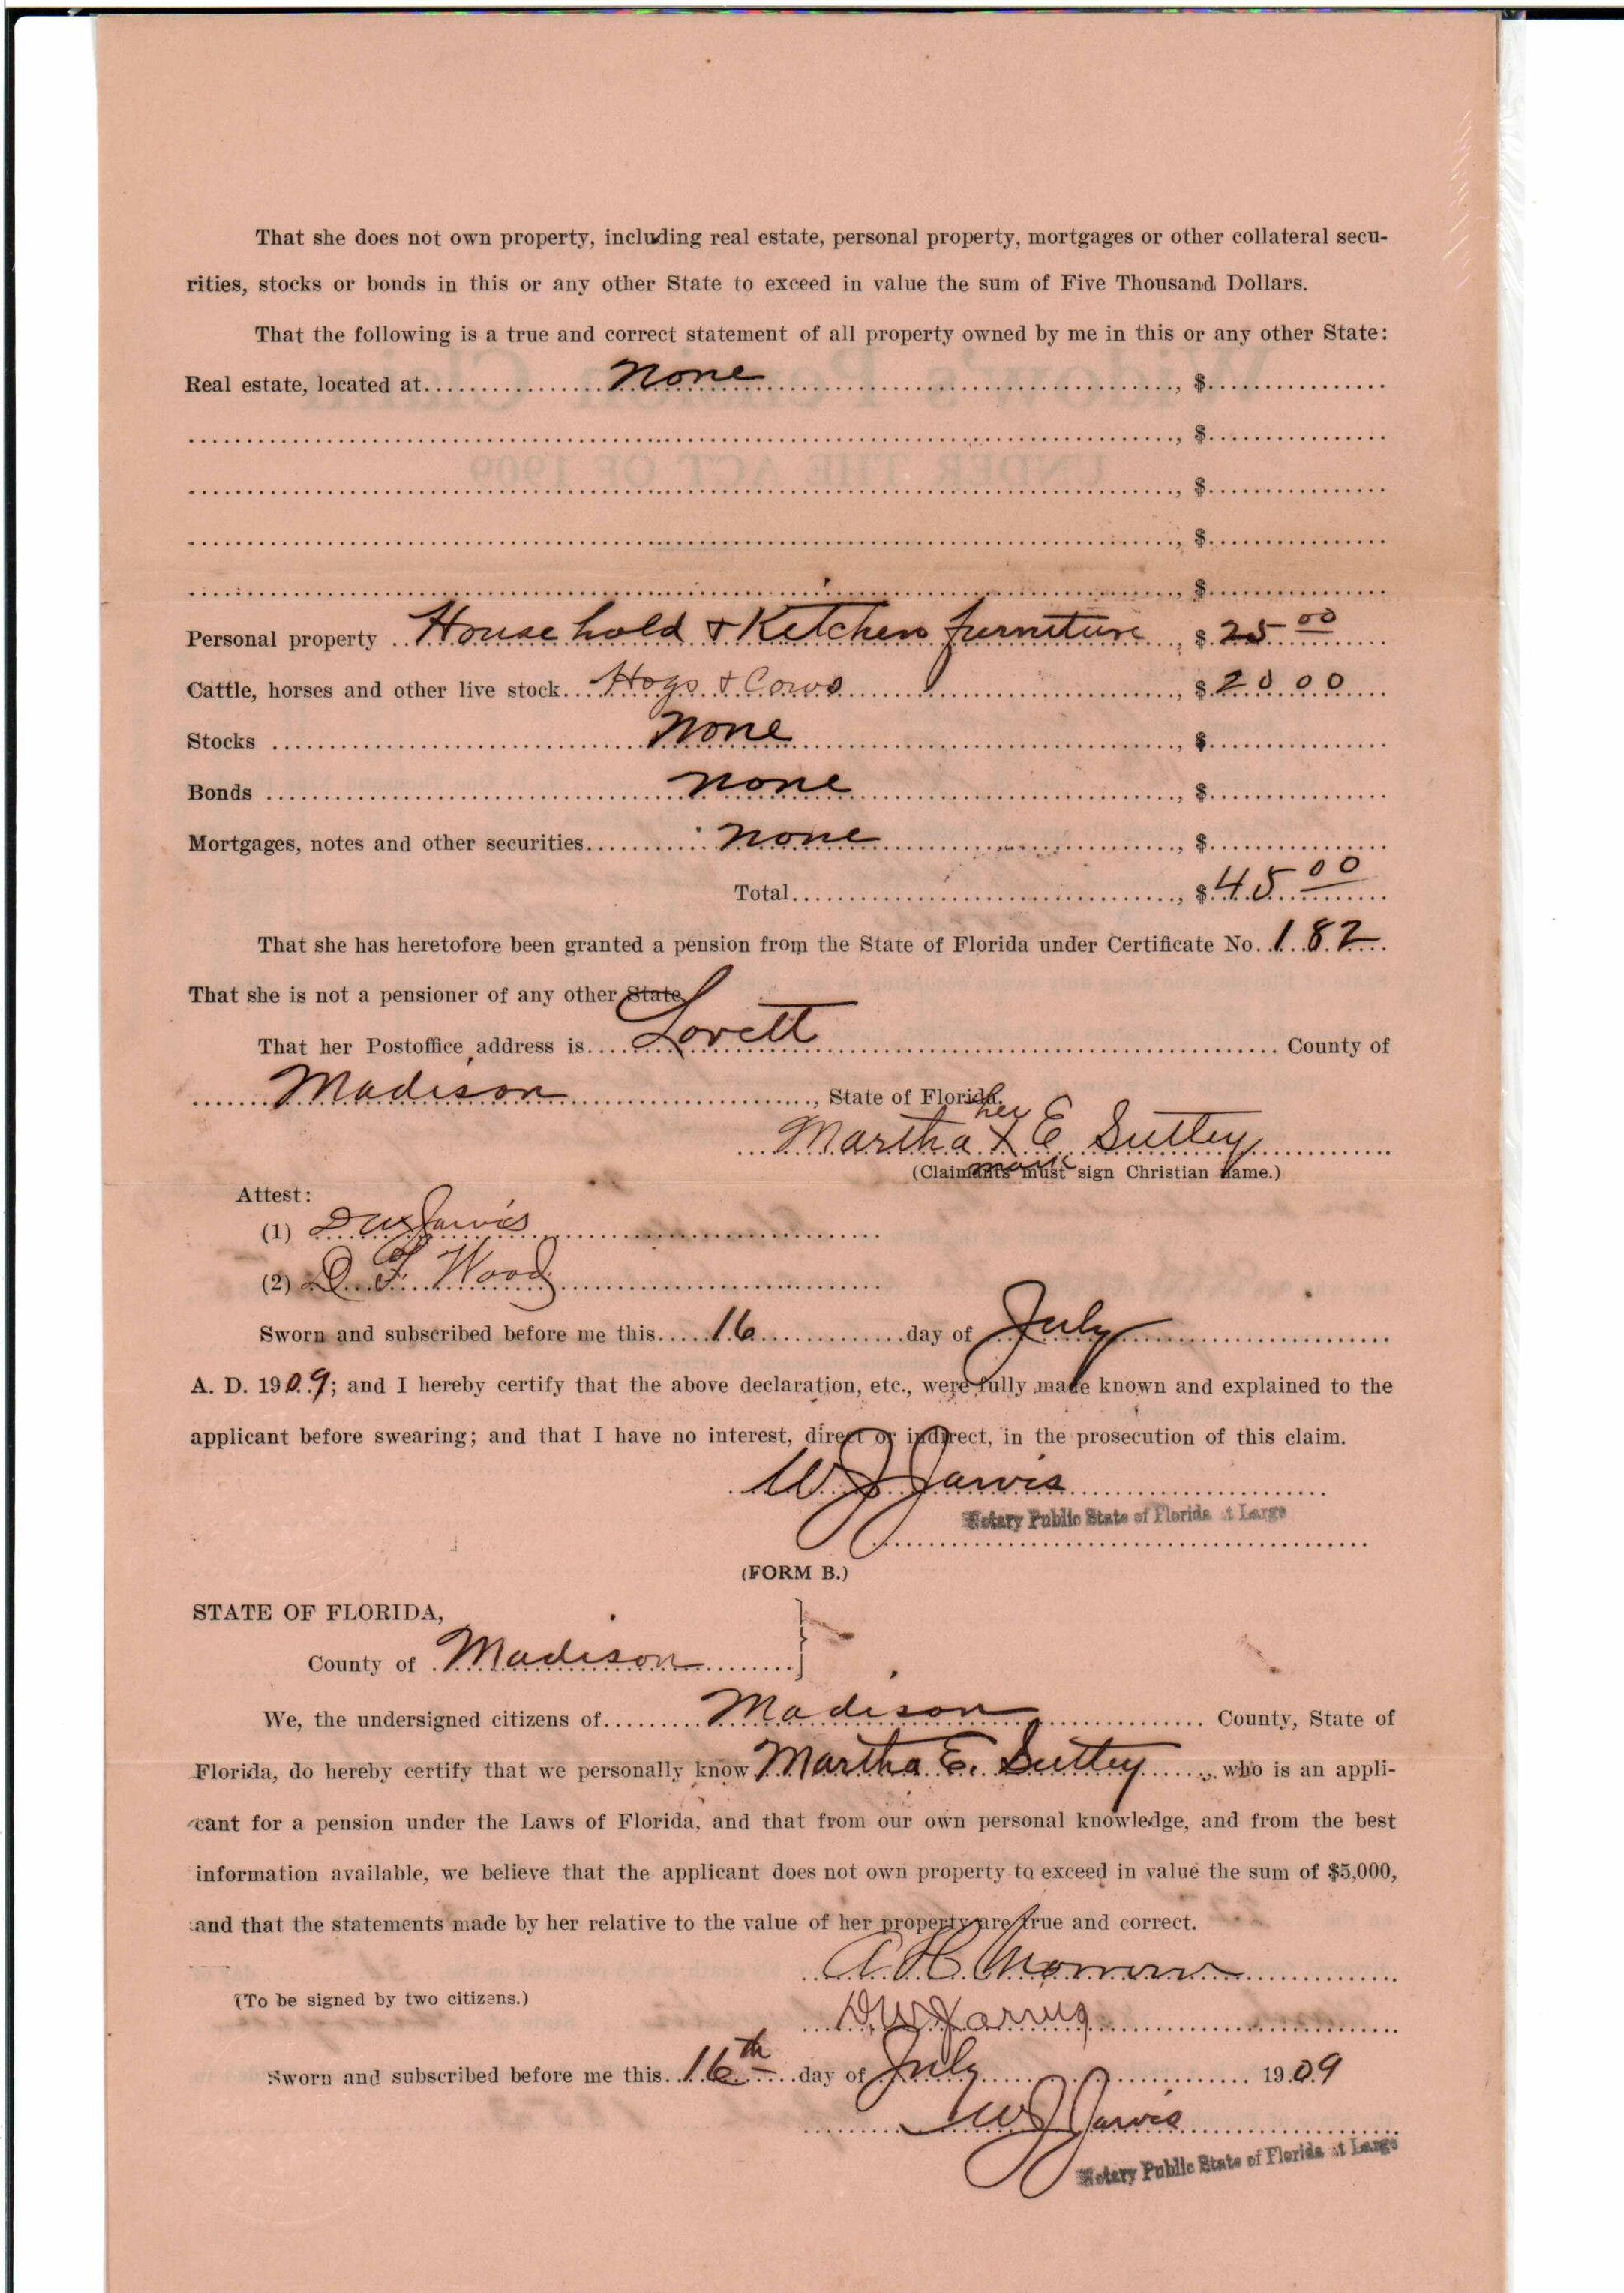 That she does not own property, including real estate, personal property, mortgages or other collateral secu-
rities, stocks or bonds in this or any other State to exceed in value the sum of Five Thousand Dollars.
That the following is a true and correct statement of all property owned by me in this or any other State:
Real estate, located at None , $
, $
, $
, $
, $
Personal property House hold & Kitchen furniture , $ 25 00
Cattle, horses and other live stock Hogs & Cows , $ 20 00
Stocks None , $
Bonds none , $
Mortgages, notes and other securities none , $
Total , $ 45 00
That she has heretofore been granted a pension from the State of Florida under Certificate No. 182
That she is not a pensioner of any other State
That her Postoffice address is Lovett County of
Madison , State of Florida.
her
Martha X E Suttey
mark
(Claimants must sign Christian name.)
Attest:
(1) D W Jarvis
(2) D. F. Wood
Sworn and subscribed before me this 16 day of July
A. D. 1909; and I hereby certify that the above declaration, etc., were fully made known and explained to the
applicant before swearing; and that I have no interest, direct or indirect, in the prosecution of this claim.
W J Jarvis
Notary Public State of Florida at Large
(FORM B.)
STATE OF FLORIDA,
County of Madison
We, the undersigned citizens of Madison County, State of
Florida, do hereby certify that we personally know Martha E. Suttey , who is an appli-
cant for a pension under the Laws of Florida, and that from our own personal knowledge, and from the best
information available, we believe that the applicant does not own property to exceed in value the sum of $5,000,
and that the statements made by her relative to the value of her property are true and correct.
A. H. Morrow
(To be signed by two citizens.)
D W Jarvis
Sworn and subscribed before me this 16th day of July 1909
W J Jarvis
Notary Public State of Florida at Large